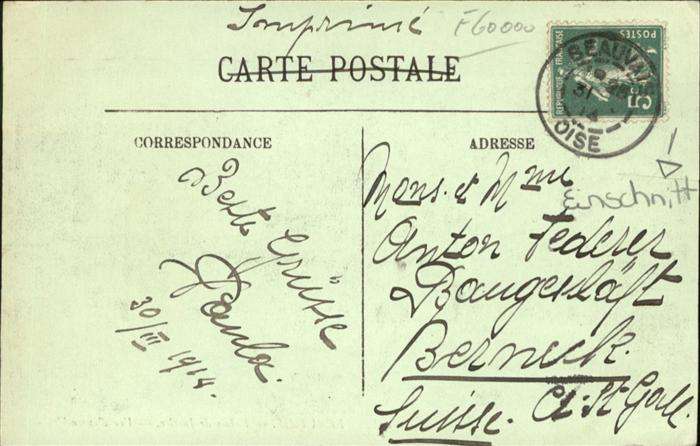 Imprimé
F60000
CARTE POSTALE
REPUBLIQUE FRANÇAISE
POSTES
5c
BEAUVAIS
31
14
OISE
CORRESPONDANCE
ADRESSE
Einschnitt
Beste Grüsse
Paula.
30/III 1914.
Mons. et Mme
Anton Federer
Baugeschäft
Berneck.
Suisse. Ct. St-Gall